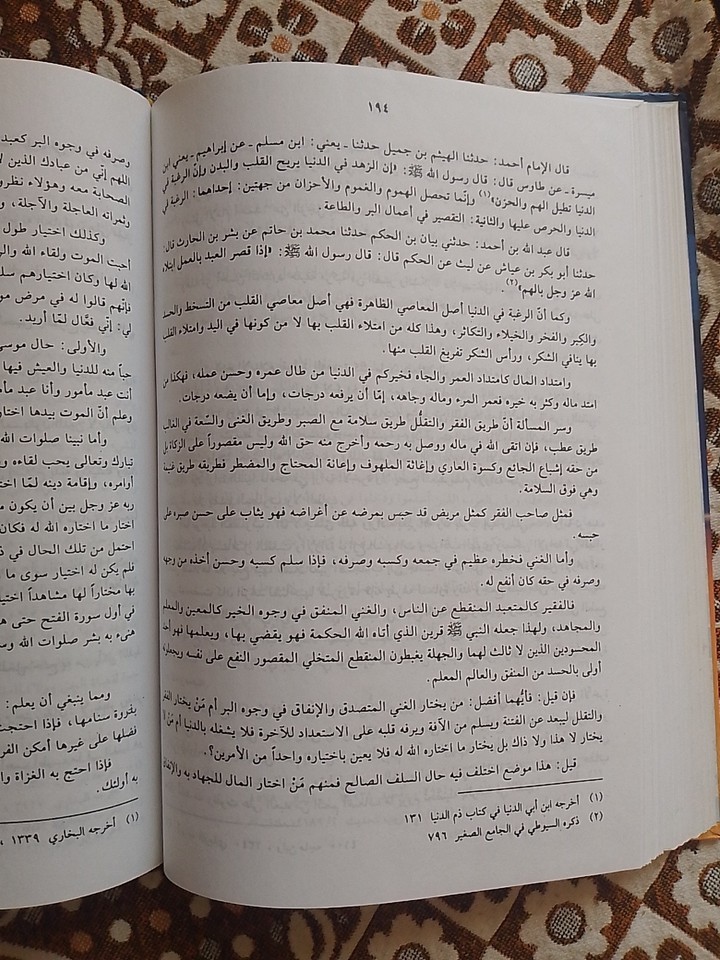 ١٩٤
قال الإمام أحمد: حدثنا الهيثم بن جميل حدثنا ـ يعني: ابن مسلم ـ عن إبراهيم ـ يعني ابن
ميسرة ـ عن طاوس قال: قال رسول الله ﷺ: «إن الزهد في الدنيا يريح القلب والبدن وإنّ الرغبة في
الدنيا تطيل الهم والحزن»(١) وإنّما تحصل الهموم والغموم والأحزان من جهتين: إحداهما: الرغبة في
الدنيا والحرص عليها والثانية: التقصير في أعمال البر والطاعة.
قال عبد الله بن أحمد: حدثني بيان بن الحكم حدثنا محمد بن حاتم عن بشر بن الحارث قال:
حدثنا أبو بكر بن عياش عن ليث عن الحكم قال: قال رسول الله ﷺ: «إذا قصر العبد بالعمل ابتلاه
الله عز وجل بالهم»(٢).
وكما أنّ الرغبة في الدنيا أصل المعاصي الظاهرة فهي أصل معاصي القلب من التسخط والحسد
والكِبر والفخر والخيلاء والتكاثر، وهذا كله من امتلاء القلب بها لا من كونها في اليد وامتلاء القلب
بها ينافي الشكر، ورأس الشكر تفريغ القلب منها.
وامتداد المال كامتداد العمر والجاه فخيركم في الدنيا من طال عمره وحسن عمله، فهكذا من
امتد ماله وكثر به خيره فعمر المرء وماله وجاهه، إمّا أن يرفعه درجات، وإما أن يضعه درجات.
وسر المسألة أنّ طريق الفقر والتقلُّل طريق سلامة مع الصبر وطريق الغنى والسّعة في الغالب
طريق عطب، فإن اتقى الله في ماله ووصل به رحمه وأخرج منه حق الله وليس مقصوراً على الزكاة بل
من حقه إشباع الجائع وكسوة العاري وإغاثة الملهوف وإعانة المحتاج والمضطر فطريقه طريق غنيمة
وهي فوق السلامة.
فمثل صاحب الفقر كمثل مريض قد حبس بمرضه عن أغراضه فهو يثاب على حسن صبره على
حبسه.
وأما الغني فخطره عظيم في جمعه وكسبه وصرفه، فإذا سلم كسبه وحسن أخذه من وجهه
وصرفه في حقه كان أنفع له.
فالفقير كالمتعبد المنقطع عن الناس، والغني المنفق في وجوه الخير كالمعين والمعلم
والمجاهد، ولهذا جعله النبي ﷺ قرين الذي أتاه الله الحكمة فهو يقضي بها، ويعلمها فهو أحد
المحسودين الذين لا ثالث لهما والجهلة يغبطون المنقطع المتخلي المقصور النفع على نفسه ويجعلونه
أولى بالحسد من المنفق والعالم المعلم.
فإن قيل: فأيُّهما أفضل: من يختار الغني المتصدق والإنفاق في وجوه البر أم مَنْ يختار الفقر
والتقلل ليبعد عن الفتنة ويسلم من الآفة ويرفه قلبه على الاستعداد للآخرة فلا يشغله بالدنيا أم مَنْ لا
يختار لا هذا ولا ذاك بل يختار ما اختاره الله له فلا يعين باختياره واحداً من الأمرين؟.
قيل: هذا موضع اختلف فيه حال السلف الصالح فمنهم مَنْ اختار المال للجهاد به والإنفاق
(١) أخرجه ابن أبي الدنيا في كتاب ذم الدنيا ١٣١
(٢) ذكره السيوطي في الجامع الصغير ٧٩٦
وصرفه في وجوه البر كعبد
اللهم إني من عبادك الذين لا
الصحابة معه وهؤلاء نظروا
وثمراته العاجلة والآجلة،
وكذلك اختيار طول
أحبت الموت ولقاء الله
الله لها وكان اختيارهم
فإنهم قالوا له في مرض
لي: إنّي فعَّال لمّا أريد.
والأولى: حال موسى
حباً منه للدنيا والعيش فيها
أنت عبد مأمور وأنا عبد
وعلم أنّ الموت بيدها
وأما نبينا صلوات الله
تبارك وتعالى يحب لقاءه
أوامره، وإقامة دينه لمّا
ربه عز وجل بين أن يكون
اختار ما اختاره الله له فكان
احتمل من تلك الحال في
فلم يكن له اختيار سوى ما
بها مختاراً لها مشاهداً
في أول سورة الفتح حتى
هنىء به بشر صلوات الله
ومما ينبغي أن يعلم:
بفروة سنامها، فإذا احتجت
فضلها على غيرها أمكن
فإذا احتج به الغزاة
به أولئك.
(١) أخرجه البخاري ١٣٣٩،